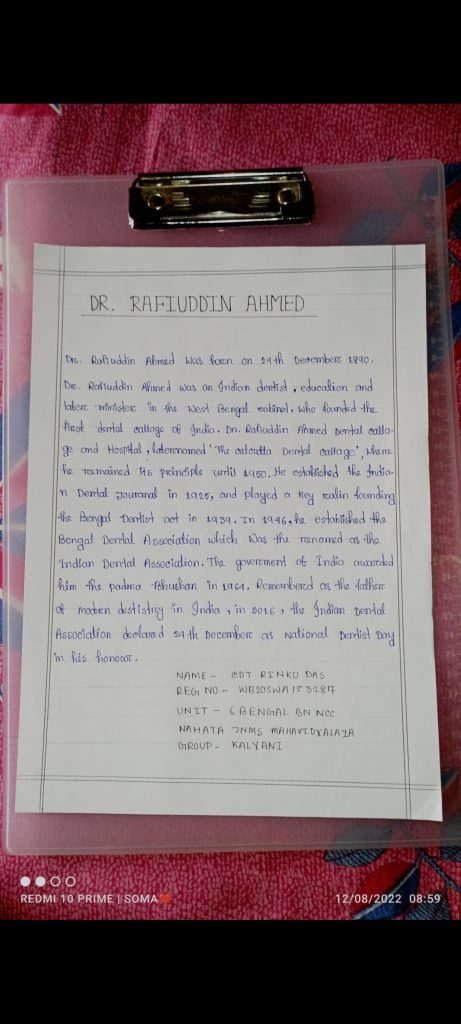 DR. RAFIUDDIN AHMED
Dr. Rafiuddin Ahmed was born on 24th December 1890.
Dr. Rafiuddin Ahmed was an Indian dentist, education and
later minister in the West Bengal cabinet, who founded the
first dental callage of India. Dr. Rafiuddin Ahmed Dental calla-
ge and Hospital, laternamed 'The calcutta Dental callage', where
he remained its principle until 1950. He established the India-
n Dental Journal in 1925, and played a key rolin founding
the Bengal Dentist act in 1939. In 1946, he established the
Bengal Dental Association which was the renamed as the
Indian Dental Association. The goverment of India awarded
him the padma Bhushan in 1964. Remembered as the father
of modren destistry in India, in 2016, the Indian Dental
Association declared 24th December as National Dentist Day
in his honour.
NAME - CDT RINKU DAS
REG NO - WB20SWA153287
UNIT - 6 BENGAL BN NCC
NAHATA JNMS MAHAVIDYALAYA
GROUP - KALYANI
REDMI 10 PRIME | SOMA❤
12/08/2022 08:59